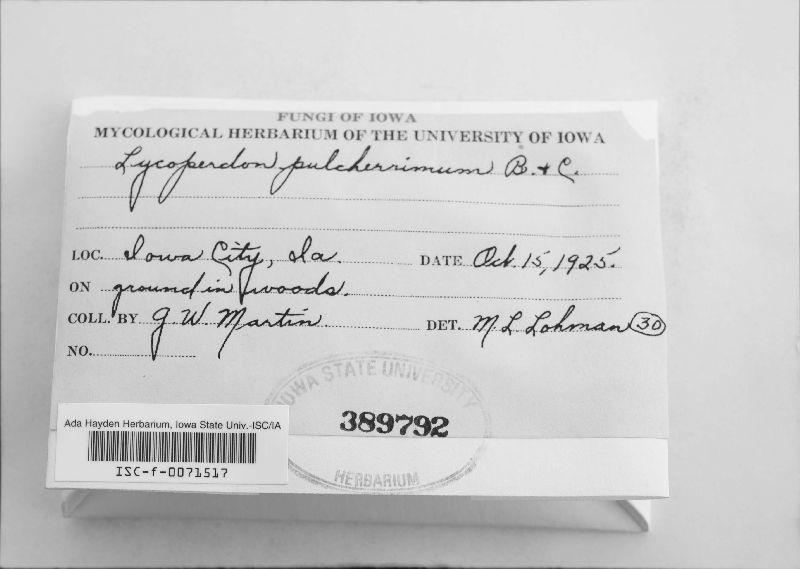 FUNGI OF IOWA
MYCOLOGICAL HERBARIUM OF THE UNIVERSITY OF IOWA
Lycoperdon pulcherrimum B. & C.
LOC. Iowa City, Ia. DATE Oct. 15, 1925.
ON ground in woods.
COLL. BY G. W. Martin DET. M. L. Lohman 30
NO.
IOWA STATE UNIVERSITY
389792
HERBARIUM
Ada Hayden Herbarium, Iowa State Univ.-ISC/IA
ISC-f-0071517